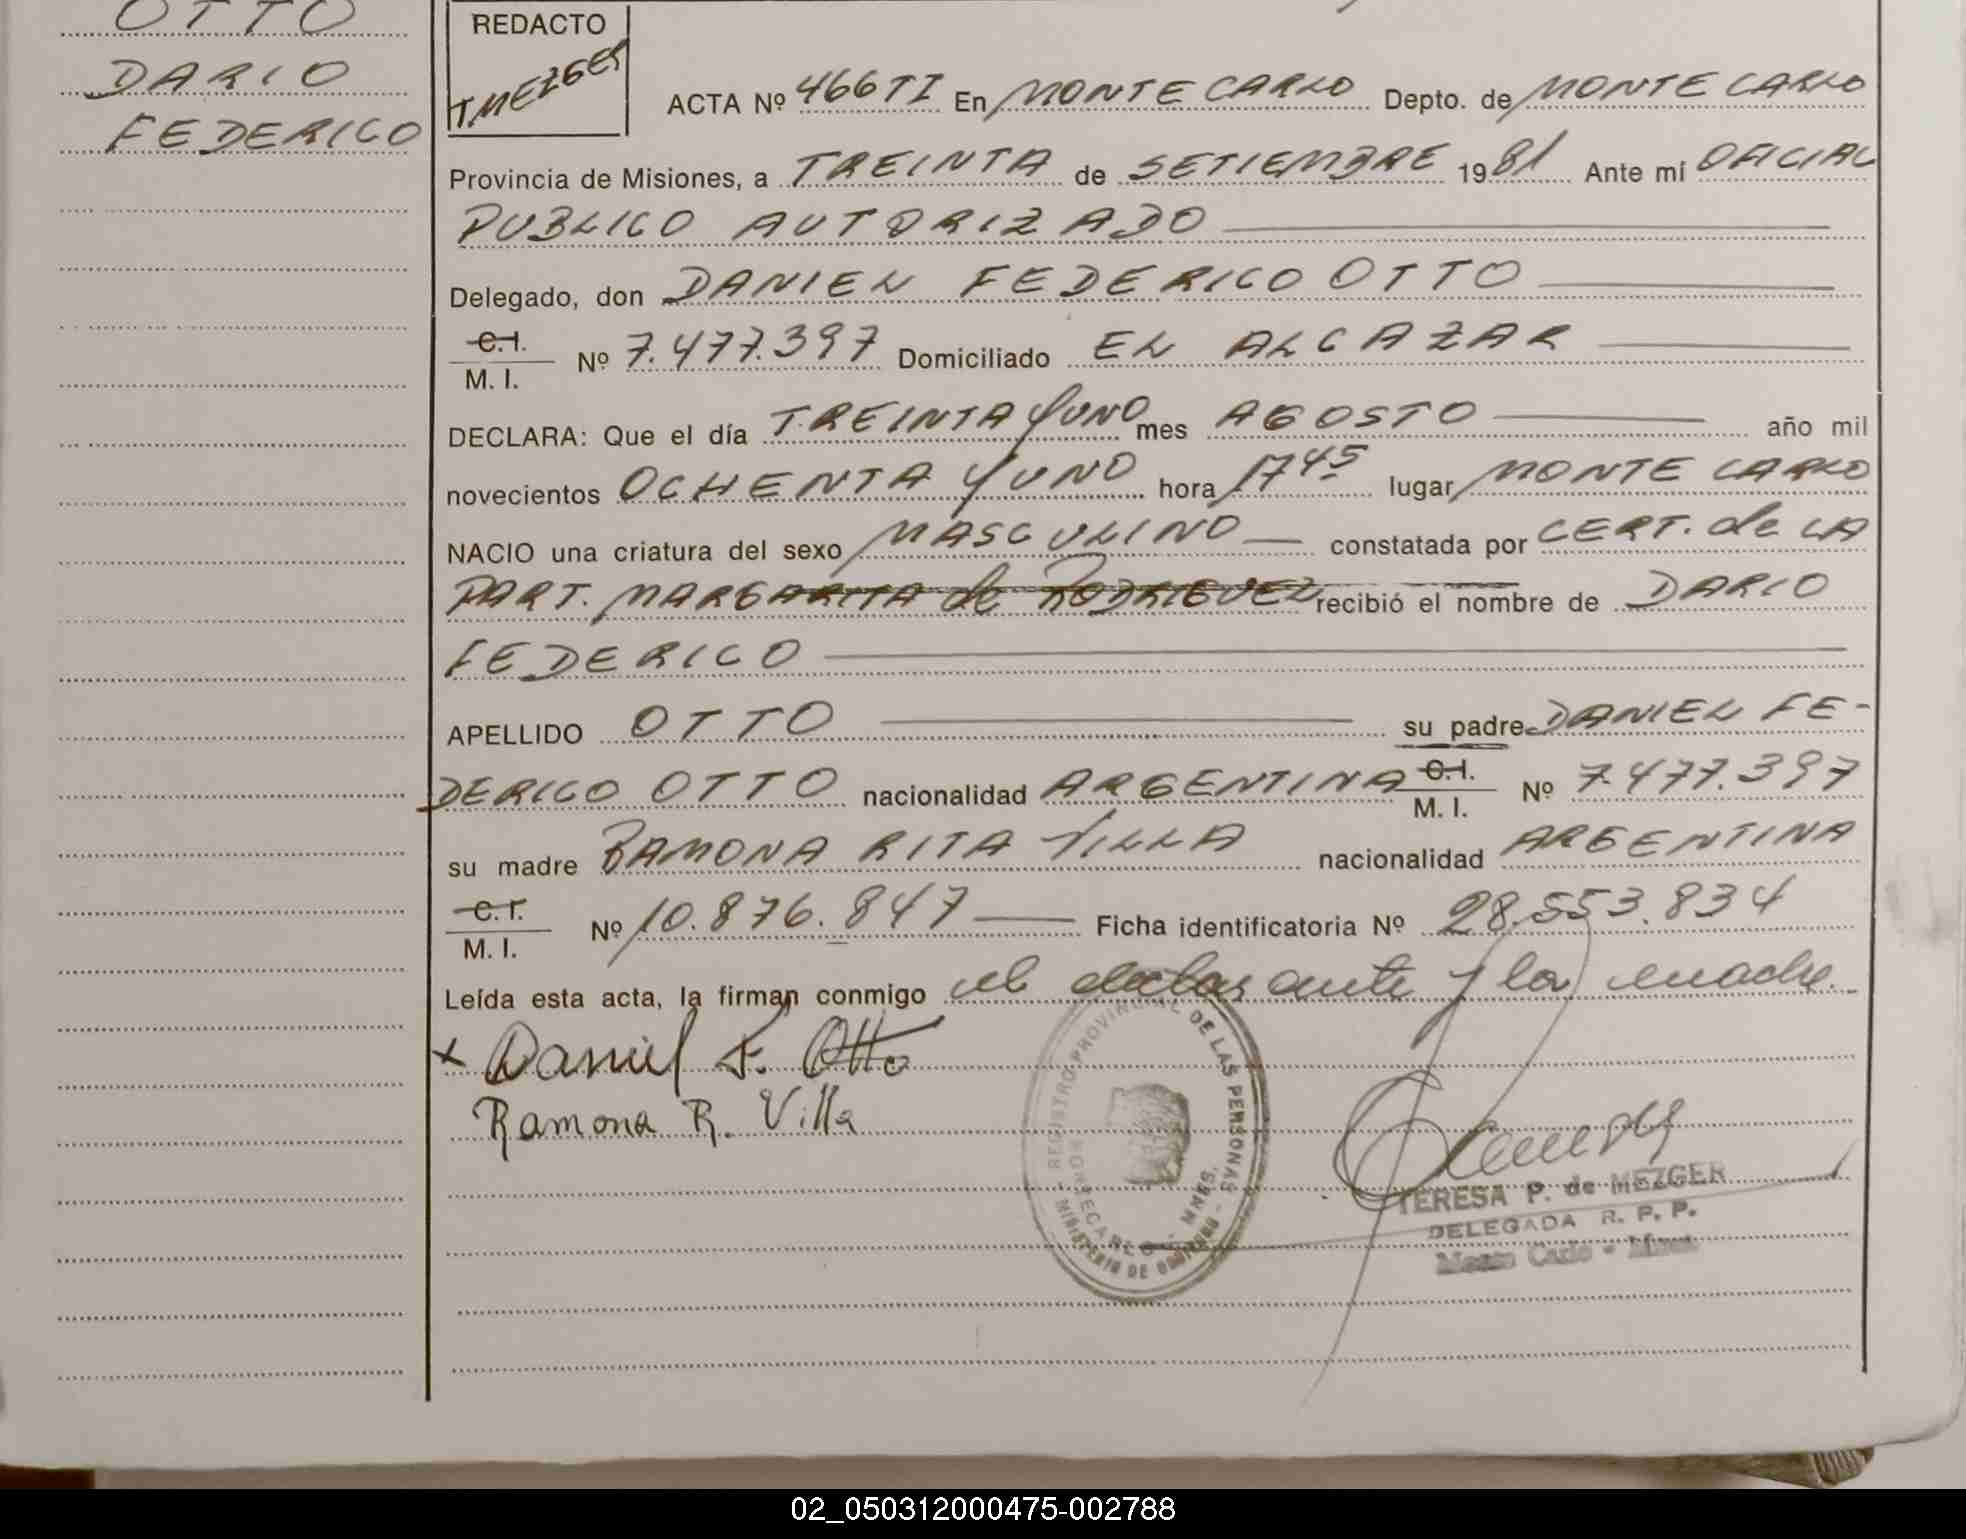 OTTO
DARIO
FEDERICO
REDACTO
T.MEZGER
ACTA Nº 466 TI En MONTECARLO Depto. de MONTECARLO
Provincia de Misiones, a TREINTA de SETIEMBRE 1981 Ante mí OFICIAL
PUBLICO AUTORIZADO
Delegado, don DANIEL FEDERICO OTTO
C.I.
M. I. Nº 7.477.397 Domiciliado EL ALCAZAR
DECLARA: Que el día TREINTA Y UNO mes AGOSTO año mil
novecientos OCHENTA Y UNO hora 17 45 lugar MONTECARLO
NACIO una criatura del sexo MASCULINO constatada por CERT. de LA
PART. MARGARITA de RODRIGUEZ recibió el nombre de DARIO
FEDERICO
APELLIDO OTTO su padre DANIEL FE-
DERICO OTTO nacionalidad ARGENTINA C.I. M. I. Nº 7.477.397
su madre RAMONA RITA VILLA nacionalidad ARGENTINA
C.I.
M. I. Nº 10.876.847 Ficha identificatoria Nº 28.553.834
Leída esta acta, la firman conmigo el declarante y la madre.
x Daniel F. Otto
Ramona R. Villa
REGISTRO PROVINCIAL DE LAS PERSONAS
MONTECARLO - MNES.
MINISTERIO DE GOBIERNO
TERESA P. de MEZGER
DELEGADA R. P. P.
Monte Carlo - Mnes.
02_050312000475-002788